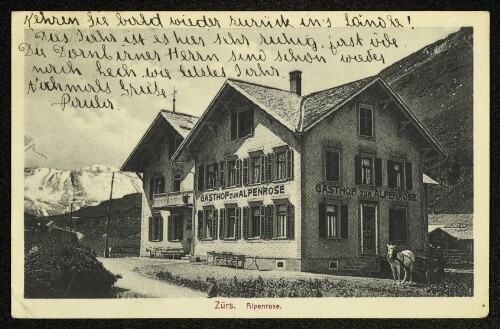 Kehren Sie bald wieder zurück in's Ländle!
Dies Jahr ist es hier sehr ruhig, fast öde.
Die Dornbirner Herrn sind schon wieder
nach Lech wie letztes Jahr.
Nahmals Grüße
Paula.
GASTHOF ZUR ALPENROSE
GASTHOF ZUR ALPENROSE
Zürs. Alpenrose.